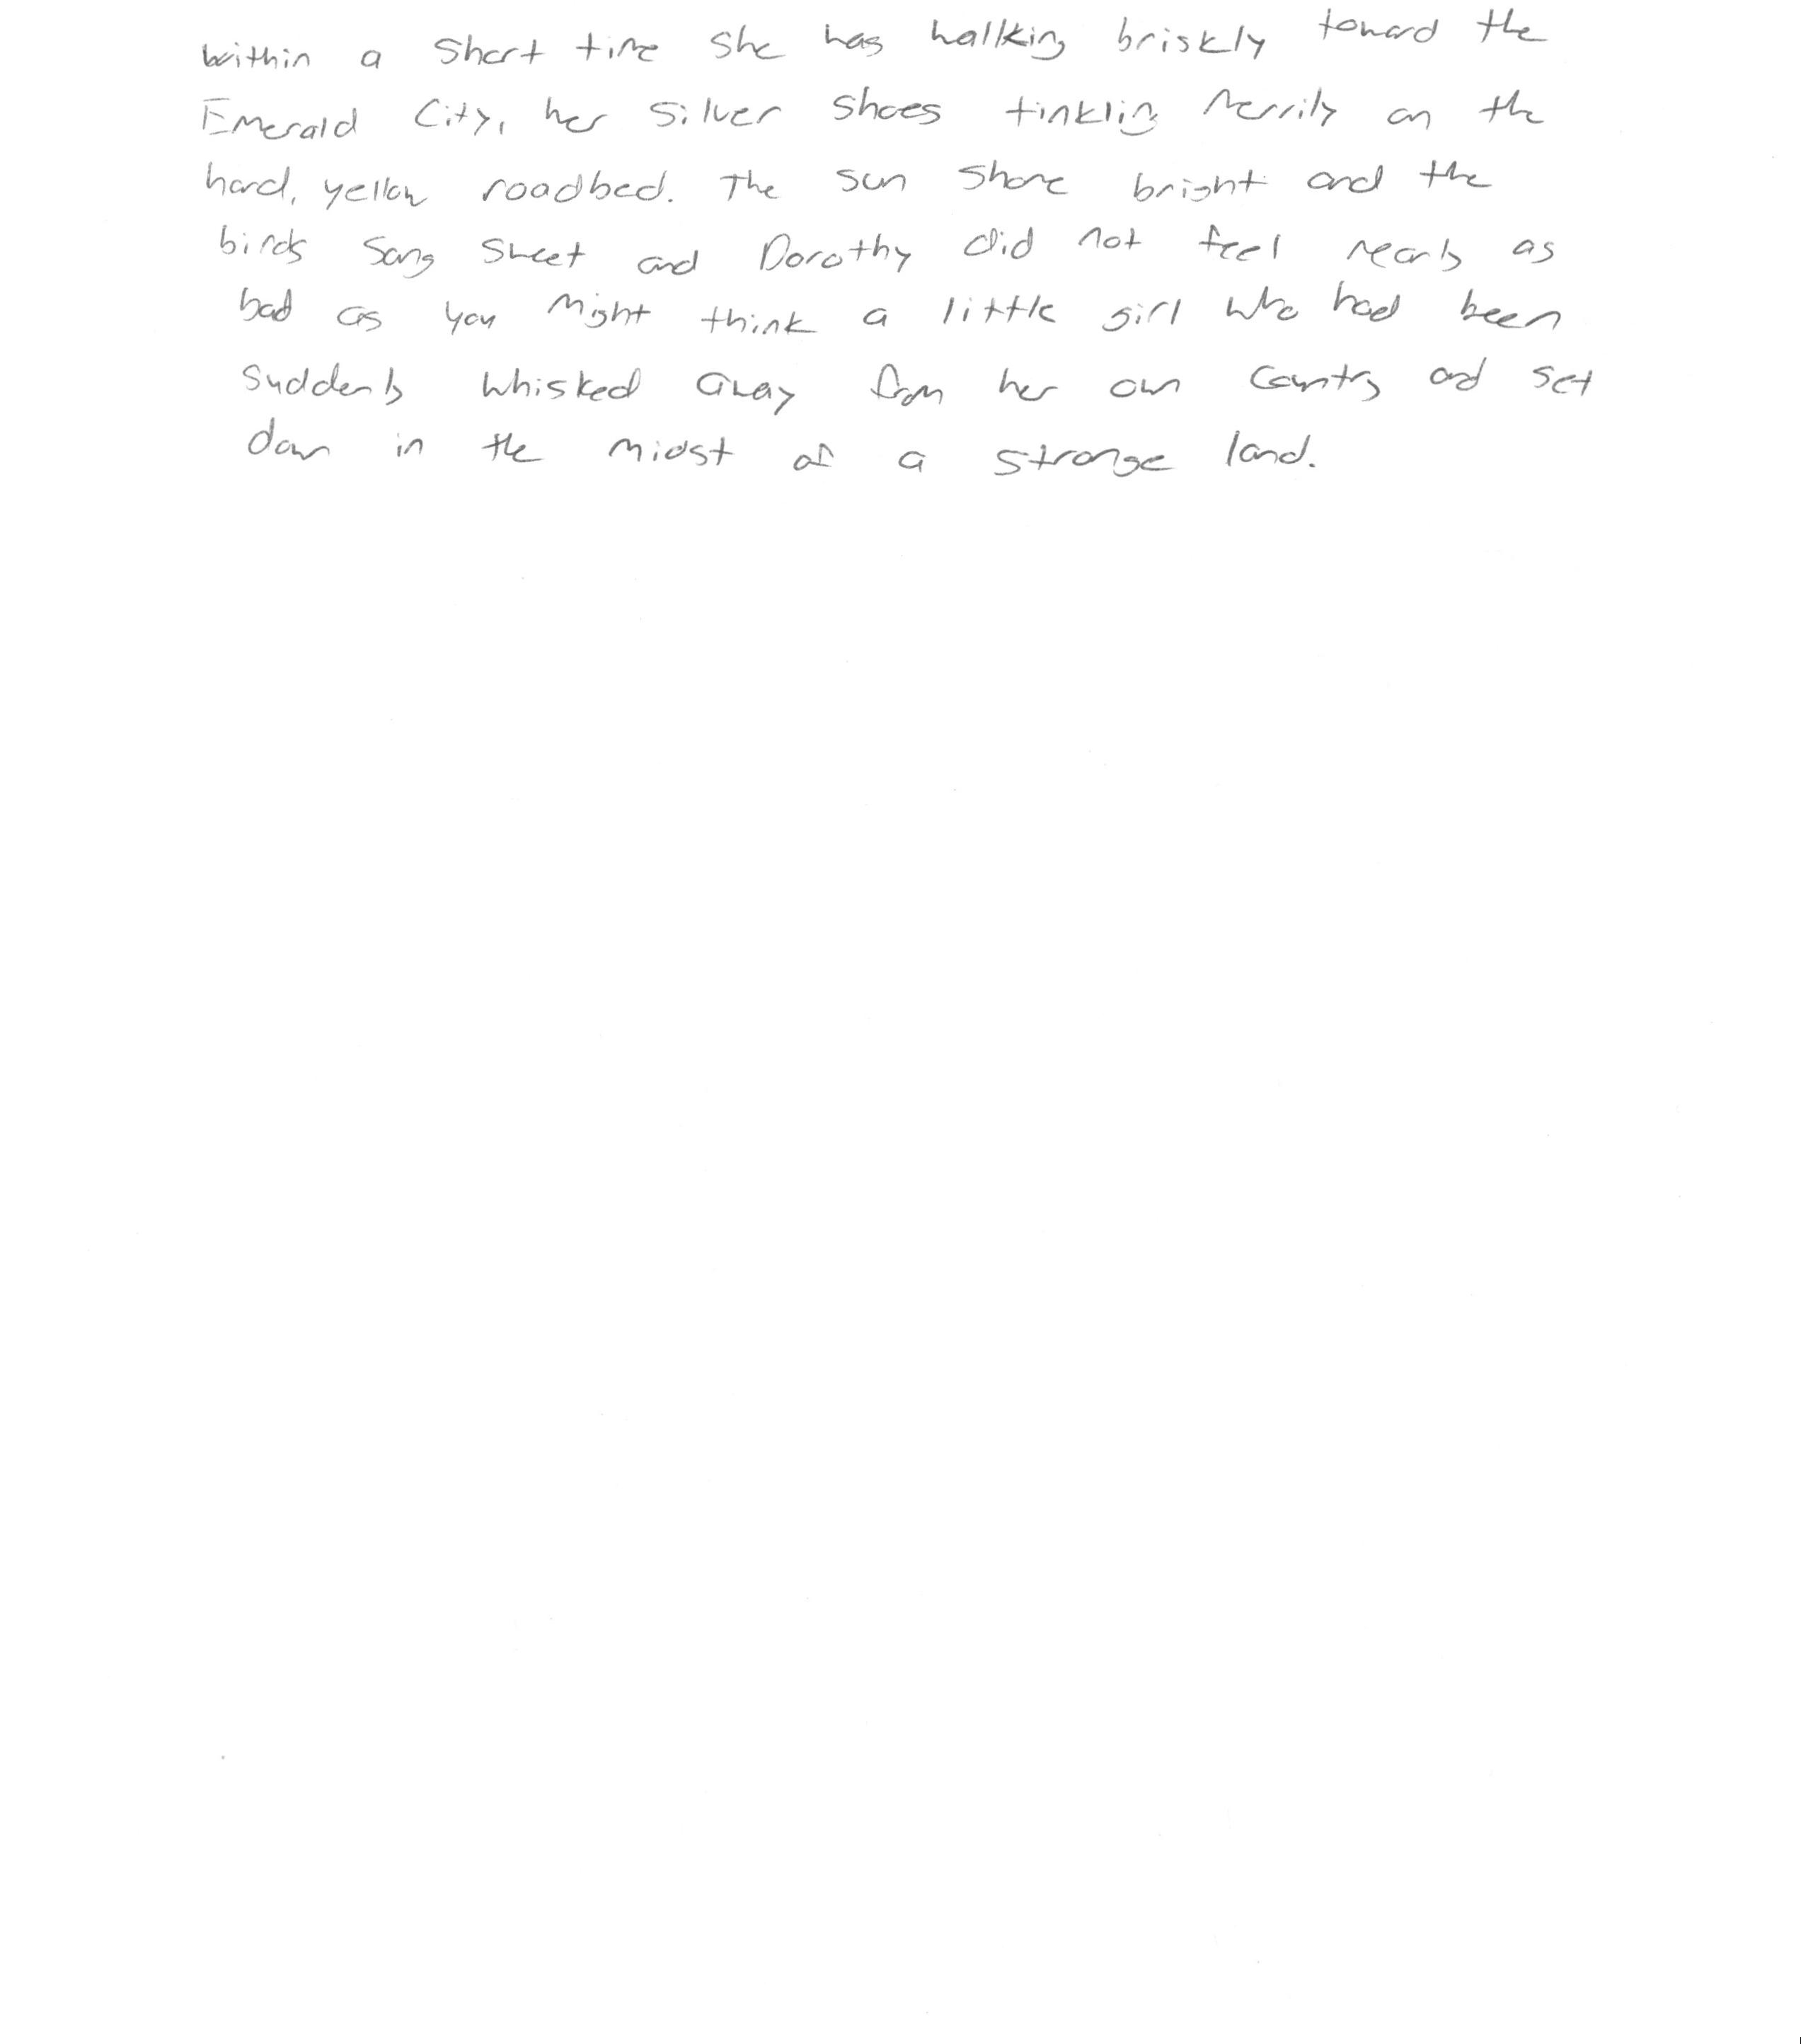 within a short time she was walking briskly toward the
Emerald City, her Silver Shoes tinkling merrily on the
hard, yellow roadbed. The sun shone bright and the
birds sang sweet and Dorothy did not feel nearly as
bad as you might think a little girl who had been
suddenly whisked away from her own country and set
down in the midst of a strange land.